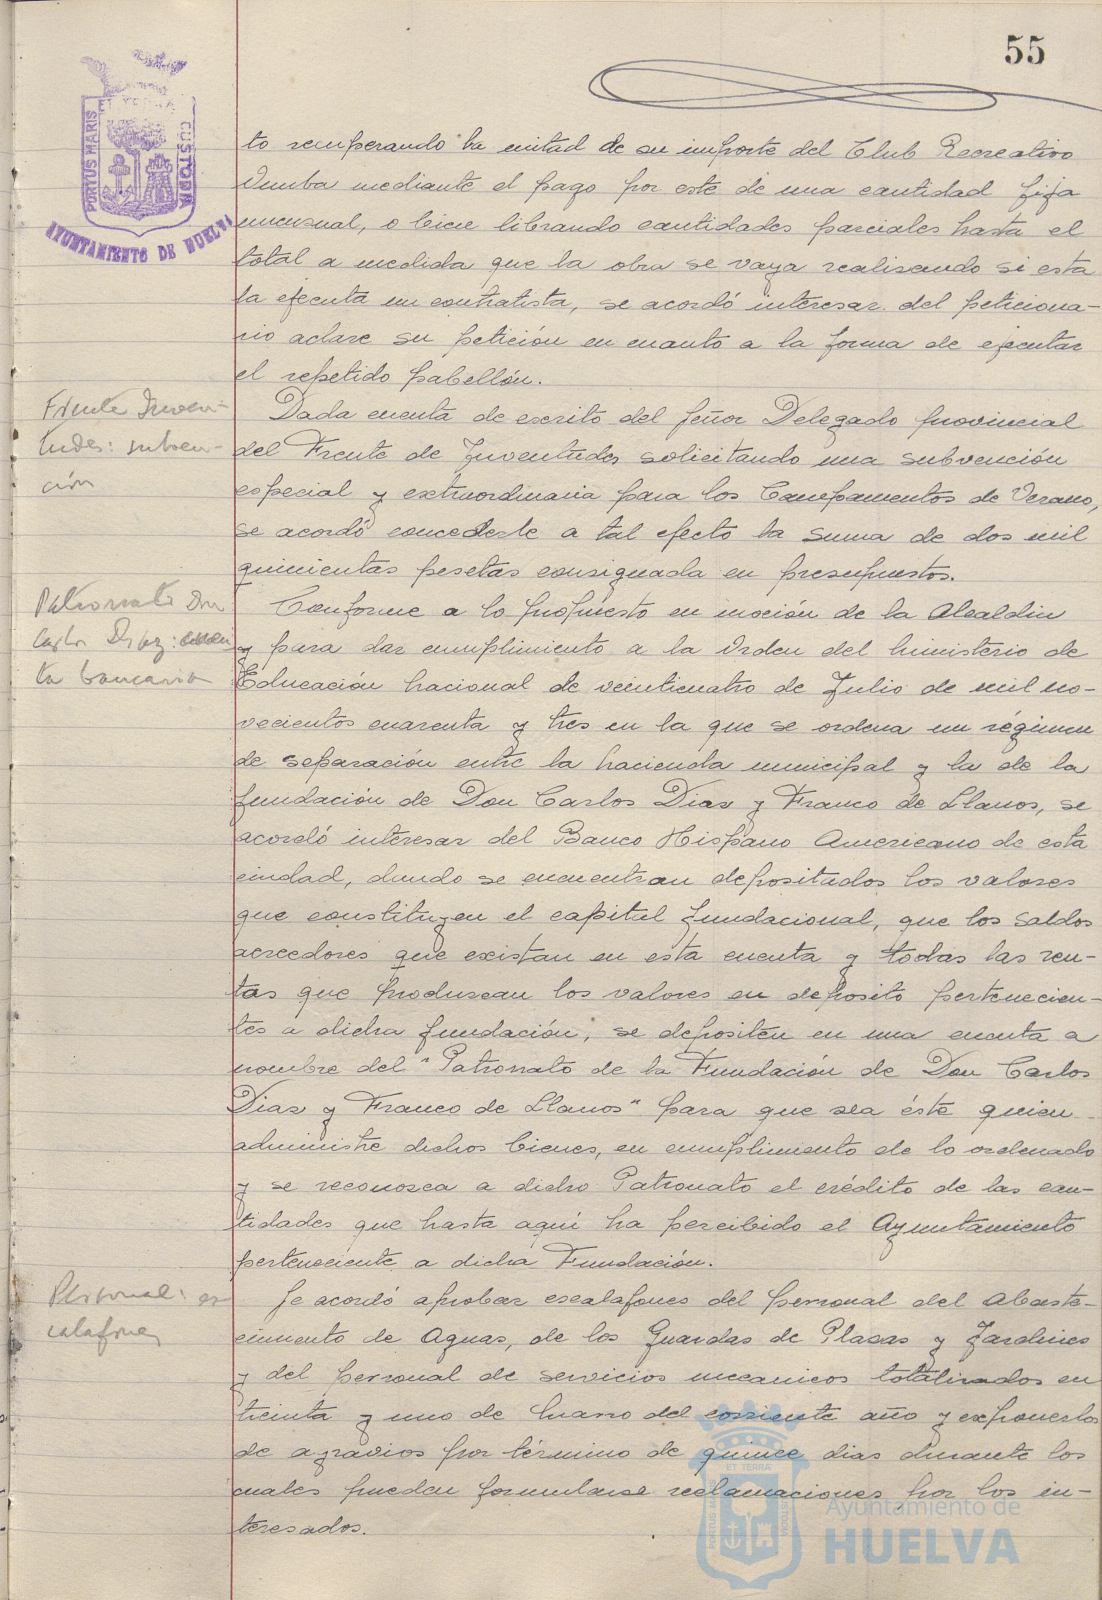 55
PORTUS MARIS ET TERRÆ CUSTODIA
AYUNTAMIENTO DE HUELVA
to recuperando la mitad de su importe del Club Recreativo
Onuba mediante el pago por este de una cantidad fija
mensual, o bien librando cantidades parciales hasta el
total a medida que la obra se vaya realizando si esta
la ejecuta un contratista, se acordó interesar del peticiona-
rio aclare su petición en cuanto a la forma de ejecutar
el repetido pabellón.
Frente Juven-
tudes: subven-
ción
Dada cuenta de escrito del Señor Delegado provincial
del Frente de Juventudes solicitando una subvención
especial y extraordinaria para los Campamentos de Verano,
se acordó concederle a tal efecto la suma de dos mil
quinientas pesetas consignada en presupuestos.
Patronato Don
Carlos Diaz: cuen
ta bancaria
Conforme a lo propuesto en moción de la Alcaldia
y para dar cumplimiento a la Orden del Ministerio de
Educación Nacional de veinticuatro de Julio de mil no-
vecientos cuarenta y tres en la que se ordena un régimen
de separación entre la hacienda municipal y la de la
fundación de Don Carlos Dias y Franco de Llanos, se
acordó interesar del Banco Hispano Americano de esta
ciudad, dondo se encuentran depositados los valores
que constituyen el capital fundacional, que los saldos
acreedores que existan en esta cuenta y todas las ren-
tas que produscan los valores en deposito pertenecien-
tes a dicha fundación, se depositen en una cuenta a
nombre del "Patronato de la Fundación de Don Carlos
Dias y Franco de Llanos" para que sea éste quien
administre dichos bienes, en cumplimiento de lo ordenado
y se reconosca a dicho Patronato el crédito de las can-
tidades que hasta aquí ha percibido el Ayuntamiento
perteneciente a dicha Fundación.
Personal: es
calafones
Se acordó aprobar escalafones del personal del Abaste-
cimiento de Aguas, de los Guardas de Plasas y Jardines
y del personal de servicios mecanicos totalizados en
treinta y uno de Marzo del corriente año y exponerlos
de agravios por término de quince dias durante los
cuales pueden formularse reclamaciones por los in-
teresados.
Ayuntamiento de
HUELVA